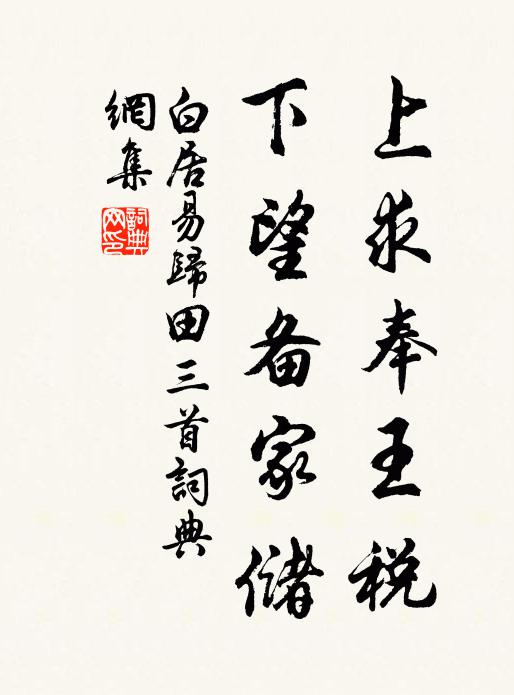 上求奉王税
下望备家儲
白居易歸田三首詞典
網集
詞典
网印